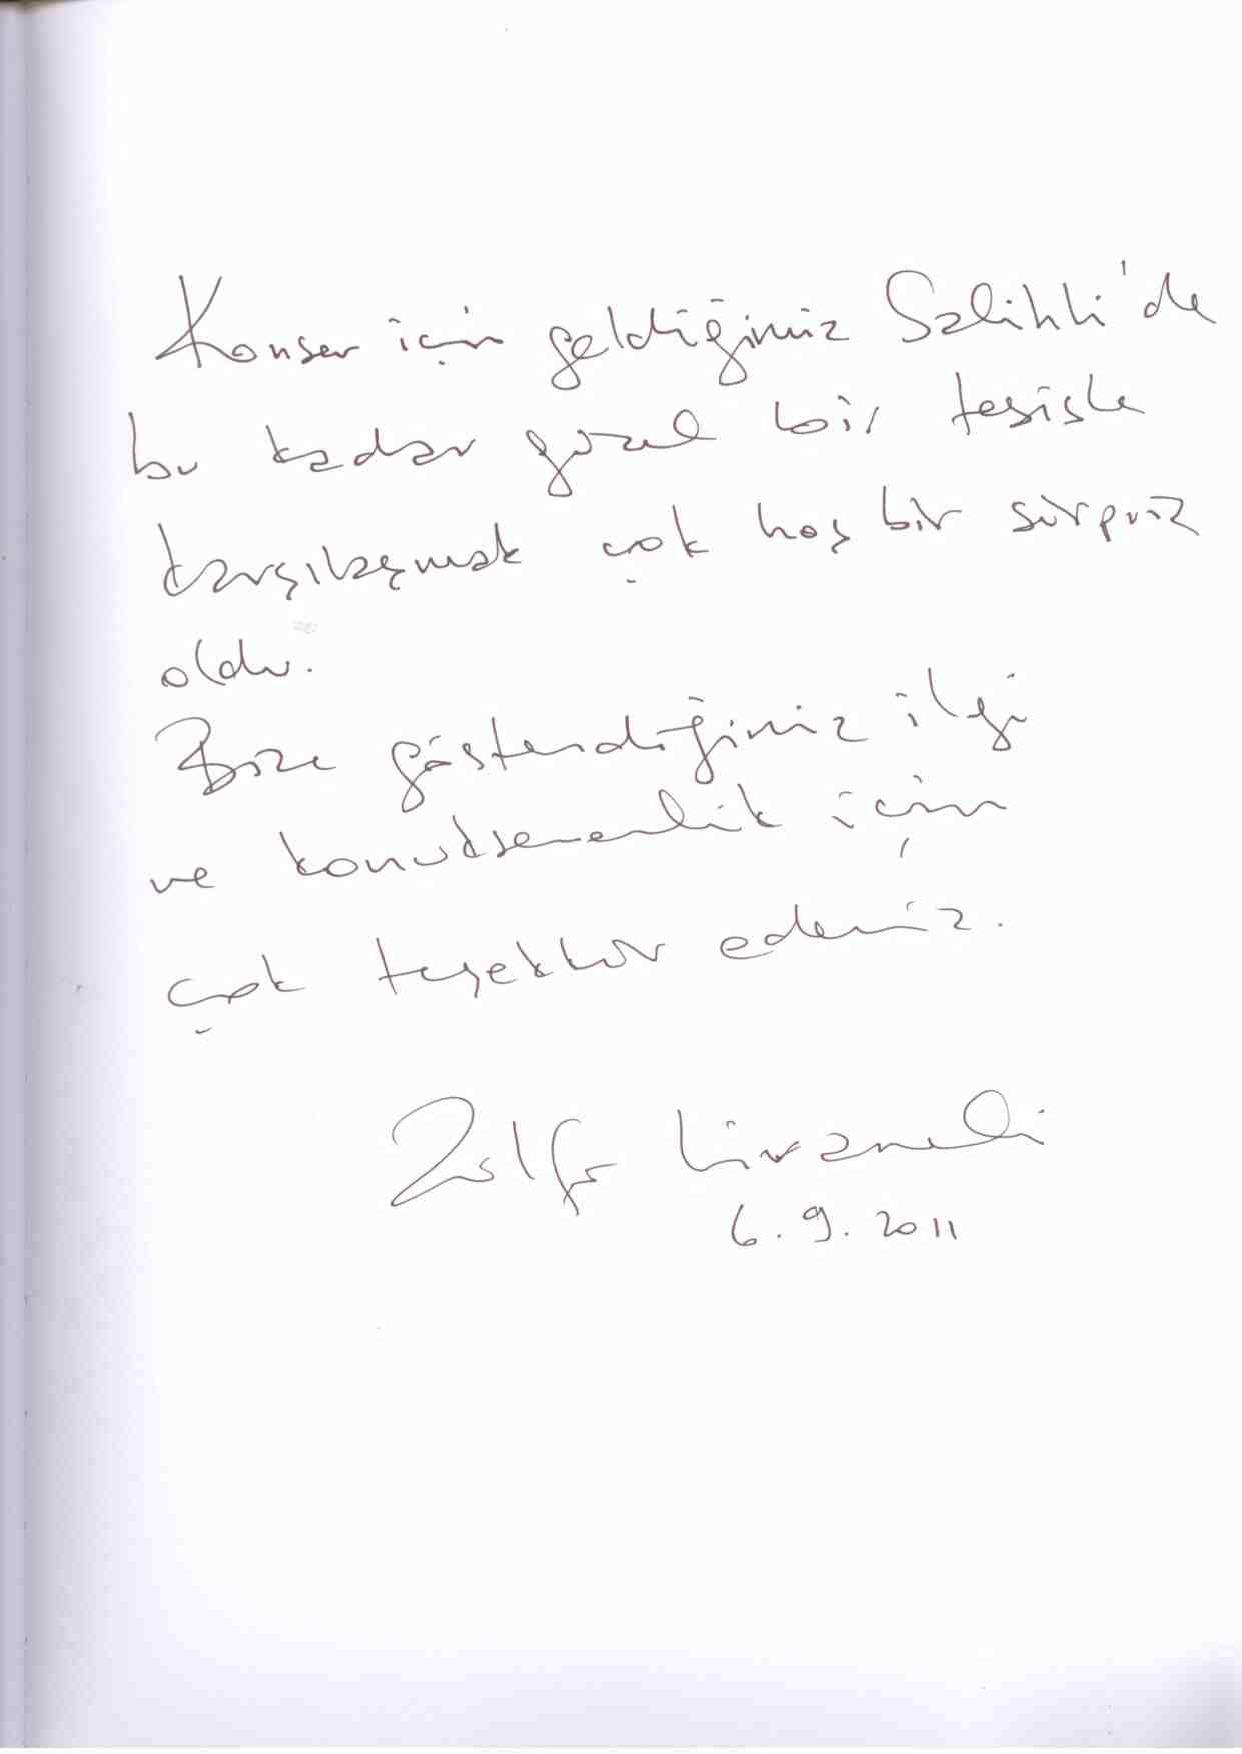 Konser için geldiğimiz Salihli'de
bu kadar güzel bir tesisle
karşılaşmak çok hoş bir sürpriz
oldu.
Bize gösterdiğiniz ilgi
ve konukseverlik için
çok teşekkür ederiz.
Zülfü Livaneli
6.9.2011